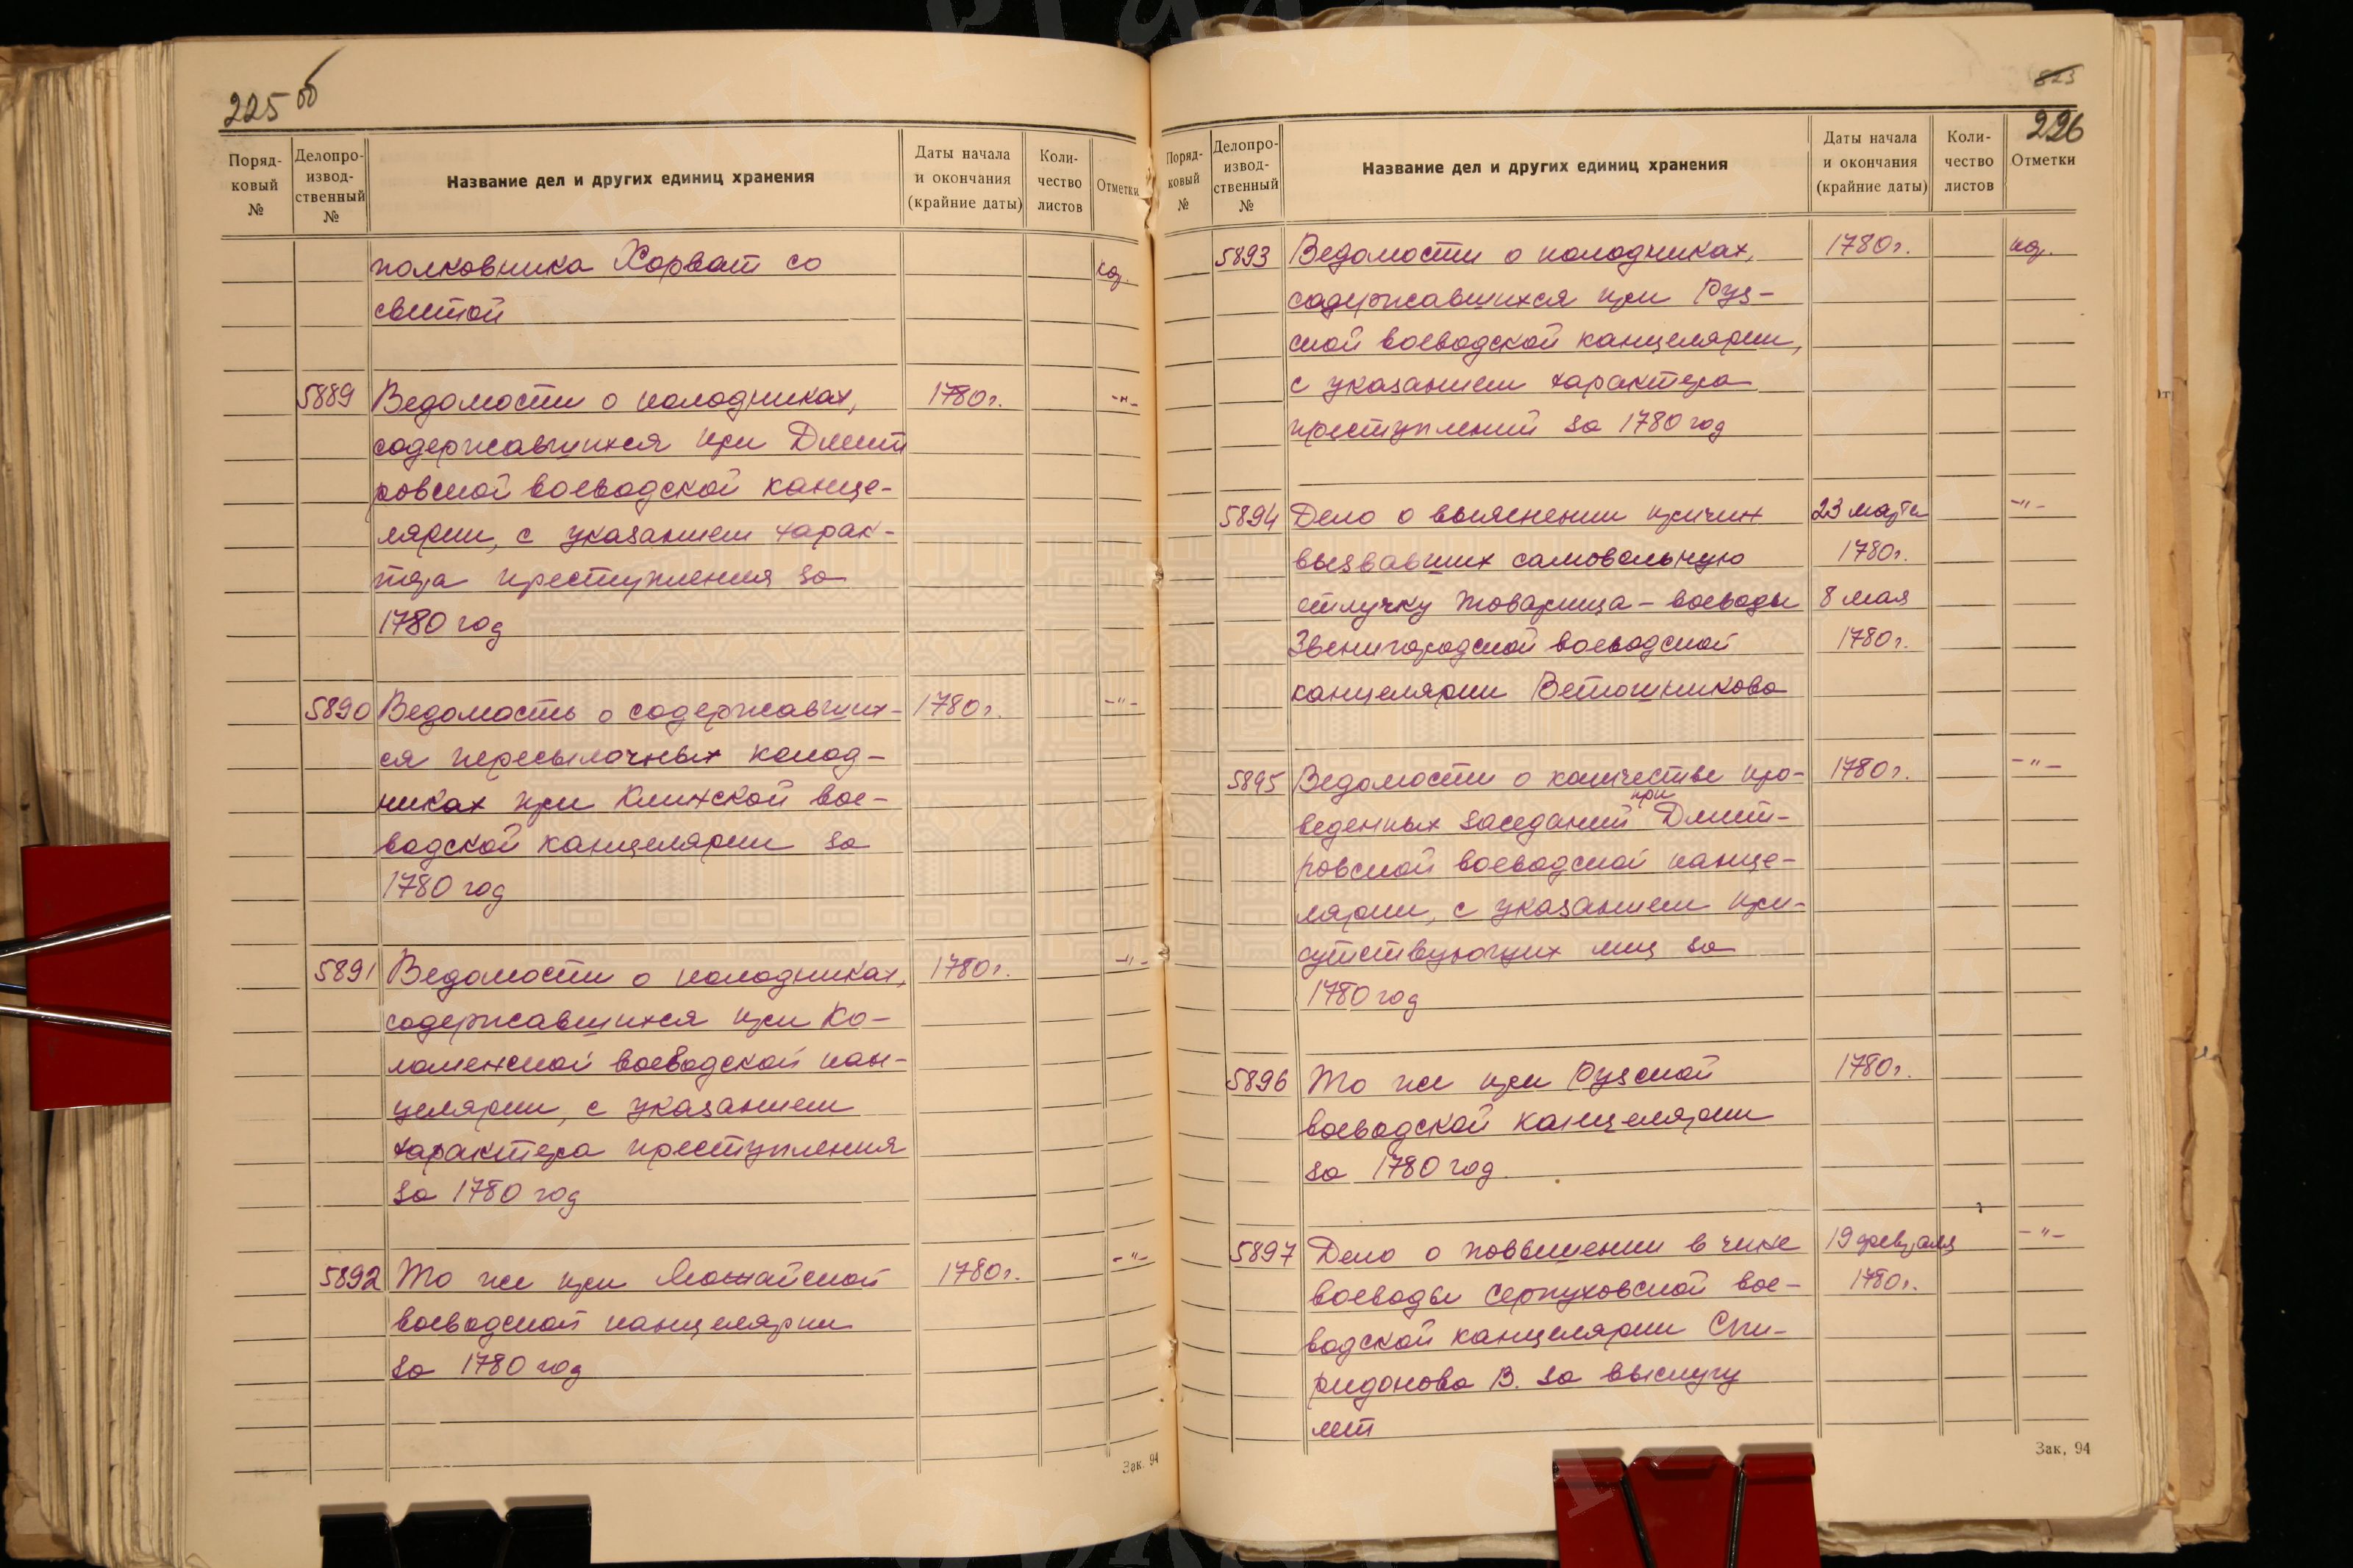 225 об
Поряд-
ковый
№
Делопро-
извод-
ственный
№
Название дел и других единиц хранения
Даты начала
и окончания
(крайние даты)
Коли-
чество
листов
Отметки
полковника Хорват со
свитой
5889 Ведомости о колодниках, 1780 г. -"-
содержавшихся при Дмит
ровской воеводской канце-
лярии, с указанием харак-
тера преступления за
1780 год
5890 Ведомость о содержавших- 1780 г. -"-
ся пересылочных колод-
никах при Клинской вое-
водской канцелярии за
1780 год
5891 Ведомости о колодниках, 1780 г. -"-
содержавшихся при Ко-
ломенской воеводской кан-
целярии, с указанием
характера преступления
за 1780 год
5892 То же при Можайской 1780 г. -"-
воеводской канцелярии
за 1780 год
Зак. 94
823
226
Поряд-
ковый
№
Делопро-
извод-
ственный
№
Название дел и других единиц хранения
Даты начала
и окончания
(крайние даты)
Коли-
чество
листов
Отметки
5893 Ведомости о колодниках, 1780 г.
содержавшихся при Руз-
ской воеводской канцелярии,
с указанием характера
преступлений за 1780 год
5894 Дело о выяснении причин 23 марта -"-
вызвавших самовольную 1780 г.
отлучку товарища - воеводы 8 мая
Звенигородской воеводской 1780 г.
канцелярии Ветошникова
5895 Ведомости о количестве про- 1780 г. -"-
веденных заседаний при Дмит-
ровской воеводской канце-
лярии, с указанием при-
сутствующих лиц за
1780 год
5896 То же при Рузской 1780 г.
воеводской канцелярии
за 1780 год.
5897 Дело о повышении в чине 19 февраля -"-
воеводы Серпуховской вое- 1780 г.
водской канцелярии Спи-
ридонова В. за выслугу
лет
Зак. 94